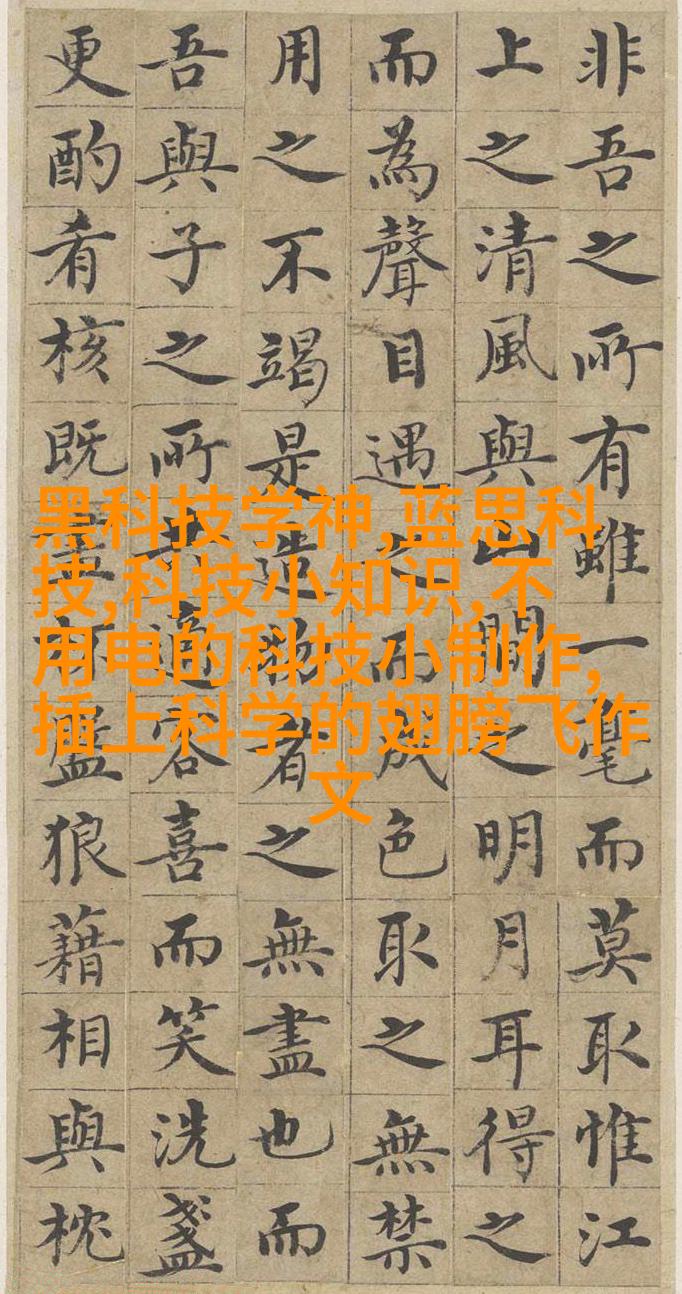 非吾之所有雖一毫而莫取惟江
上之清風與山間之明月耳得之
而為聲目遇之而成色取之無禁
用之不竭是造物者之無盡也而
吾與子之所共適客喜而笑洗盞
更酌肴核既盡杯盤狼藉相與枕
黑科技学神,蓝思科
技,科技小知识,不
用电的科技小制作,
插上科学的翅膀飞作
文